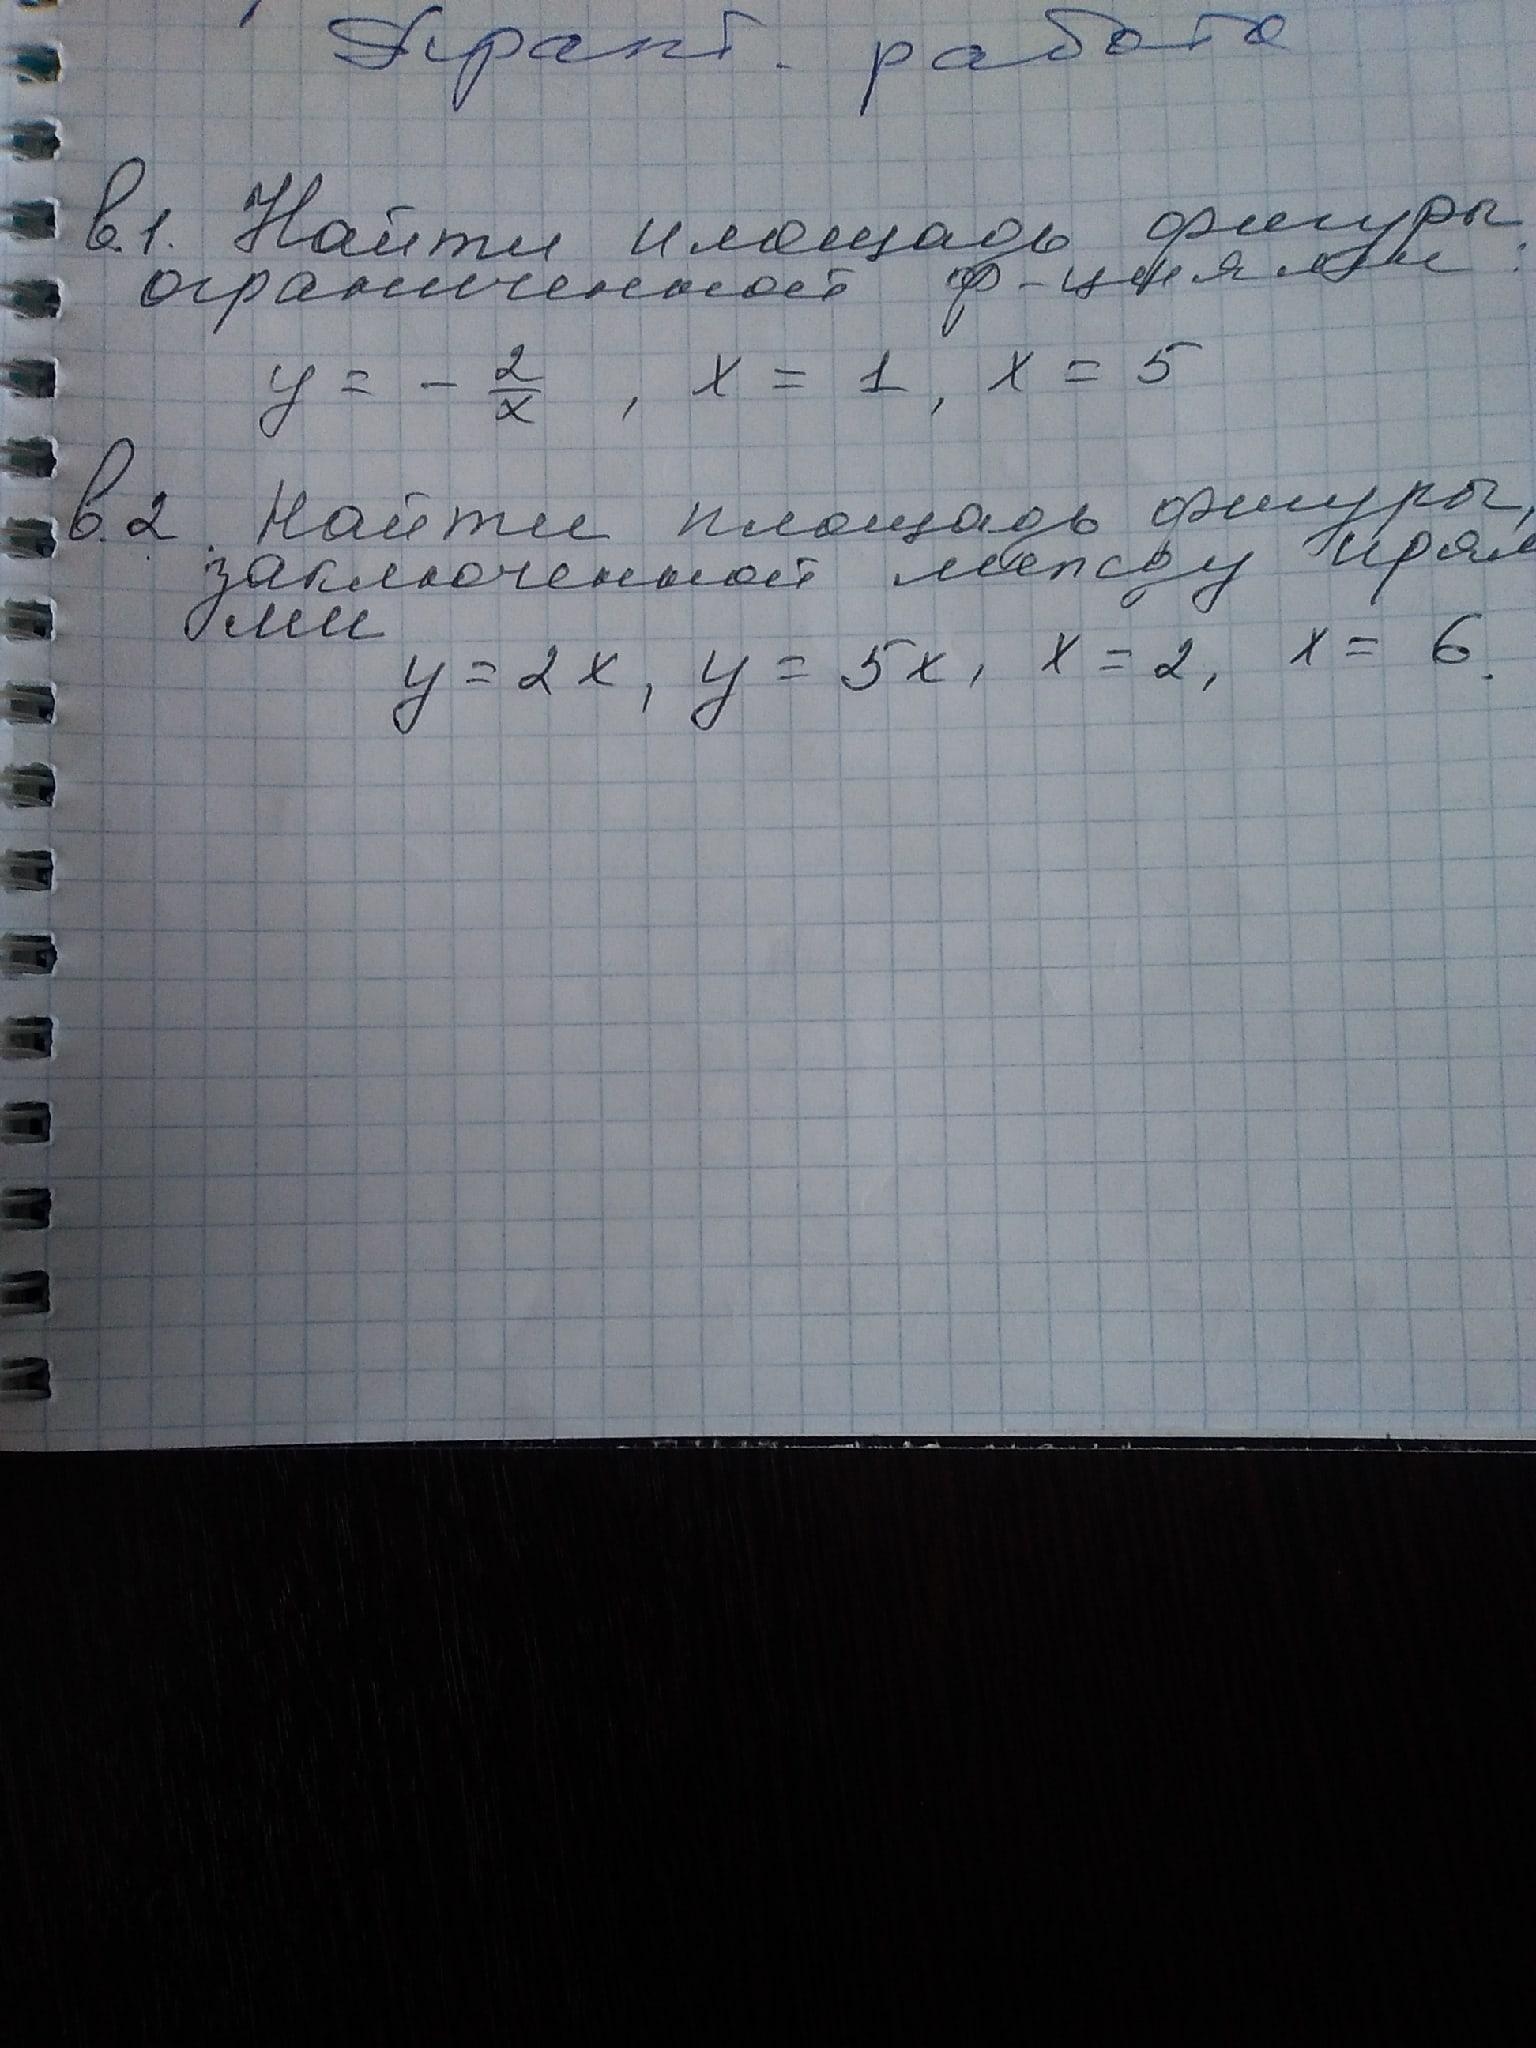 Практ. работа
в.1. Найти площадь фигуры
ограниченной ф-циями:
y = - 2/x , x = 1, x = 5
в.2. Найти площадь фигуры,
заключенной между прям
ми
y = 2x, y = 5x, x = 2, x = 6.